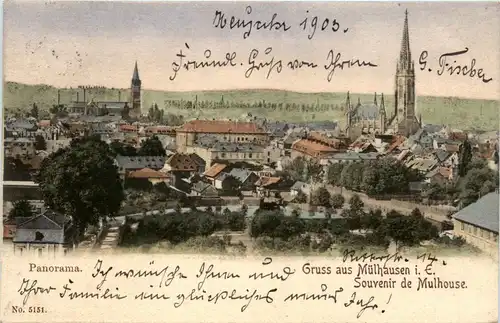 Neujahr 1903.
Freundl. Gruß von Ihrem G. Fischer
Panorama.
Gruss aus Mülhausen i. E.
Souvenir de Mulhouse.
Ich wünsche Ihnen und
Ihrer Familie ein glückliches neues Jahr!
No. 5151.